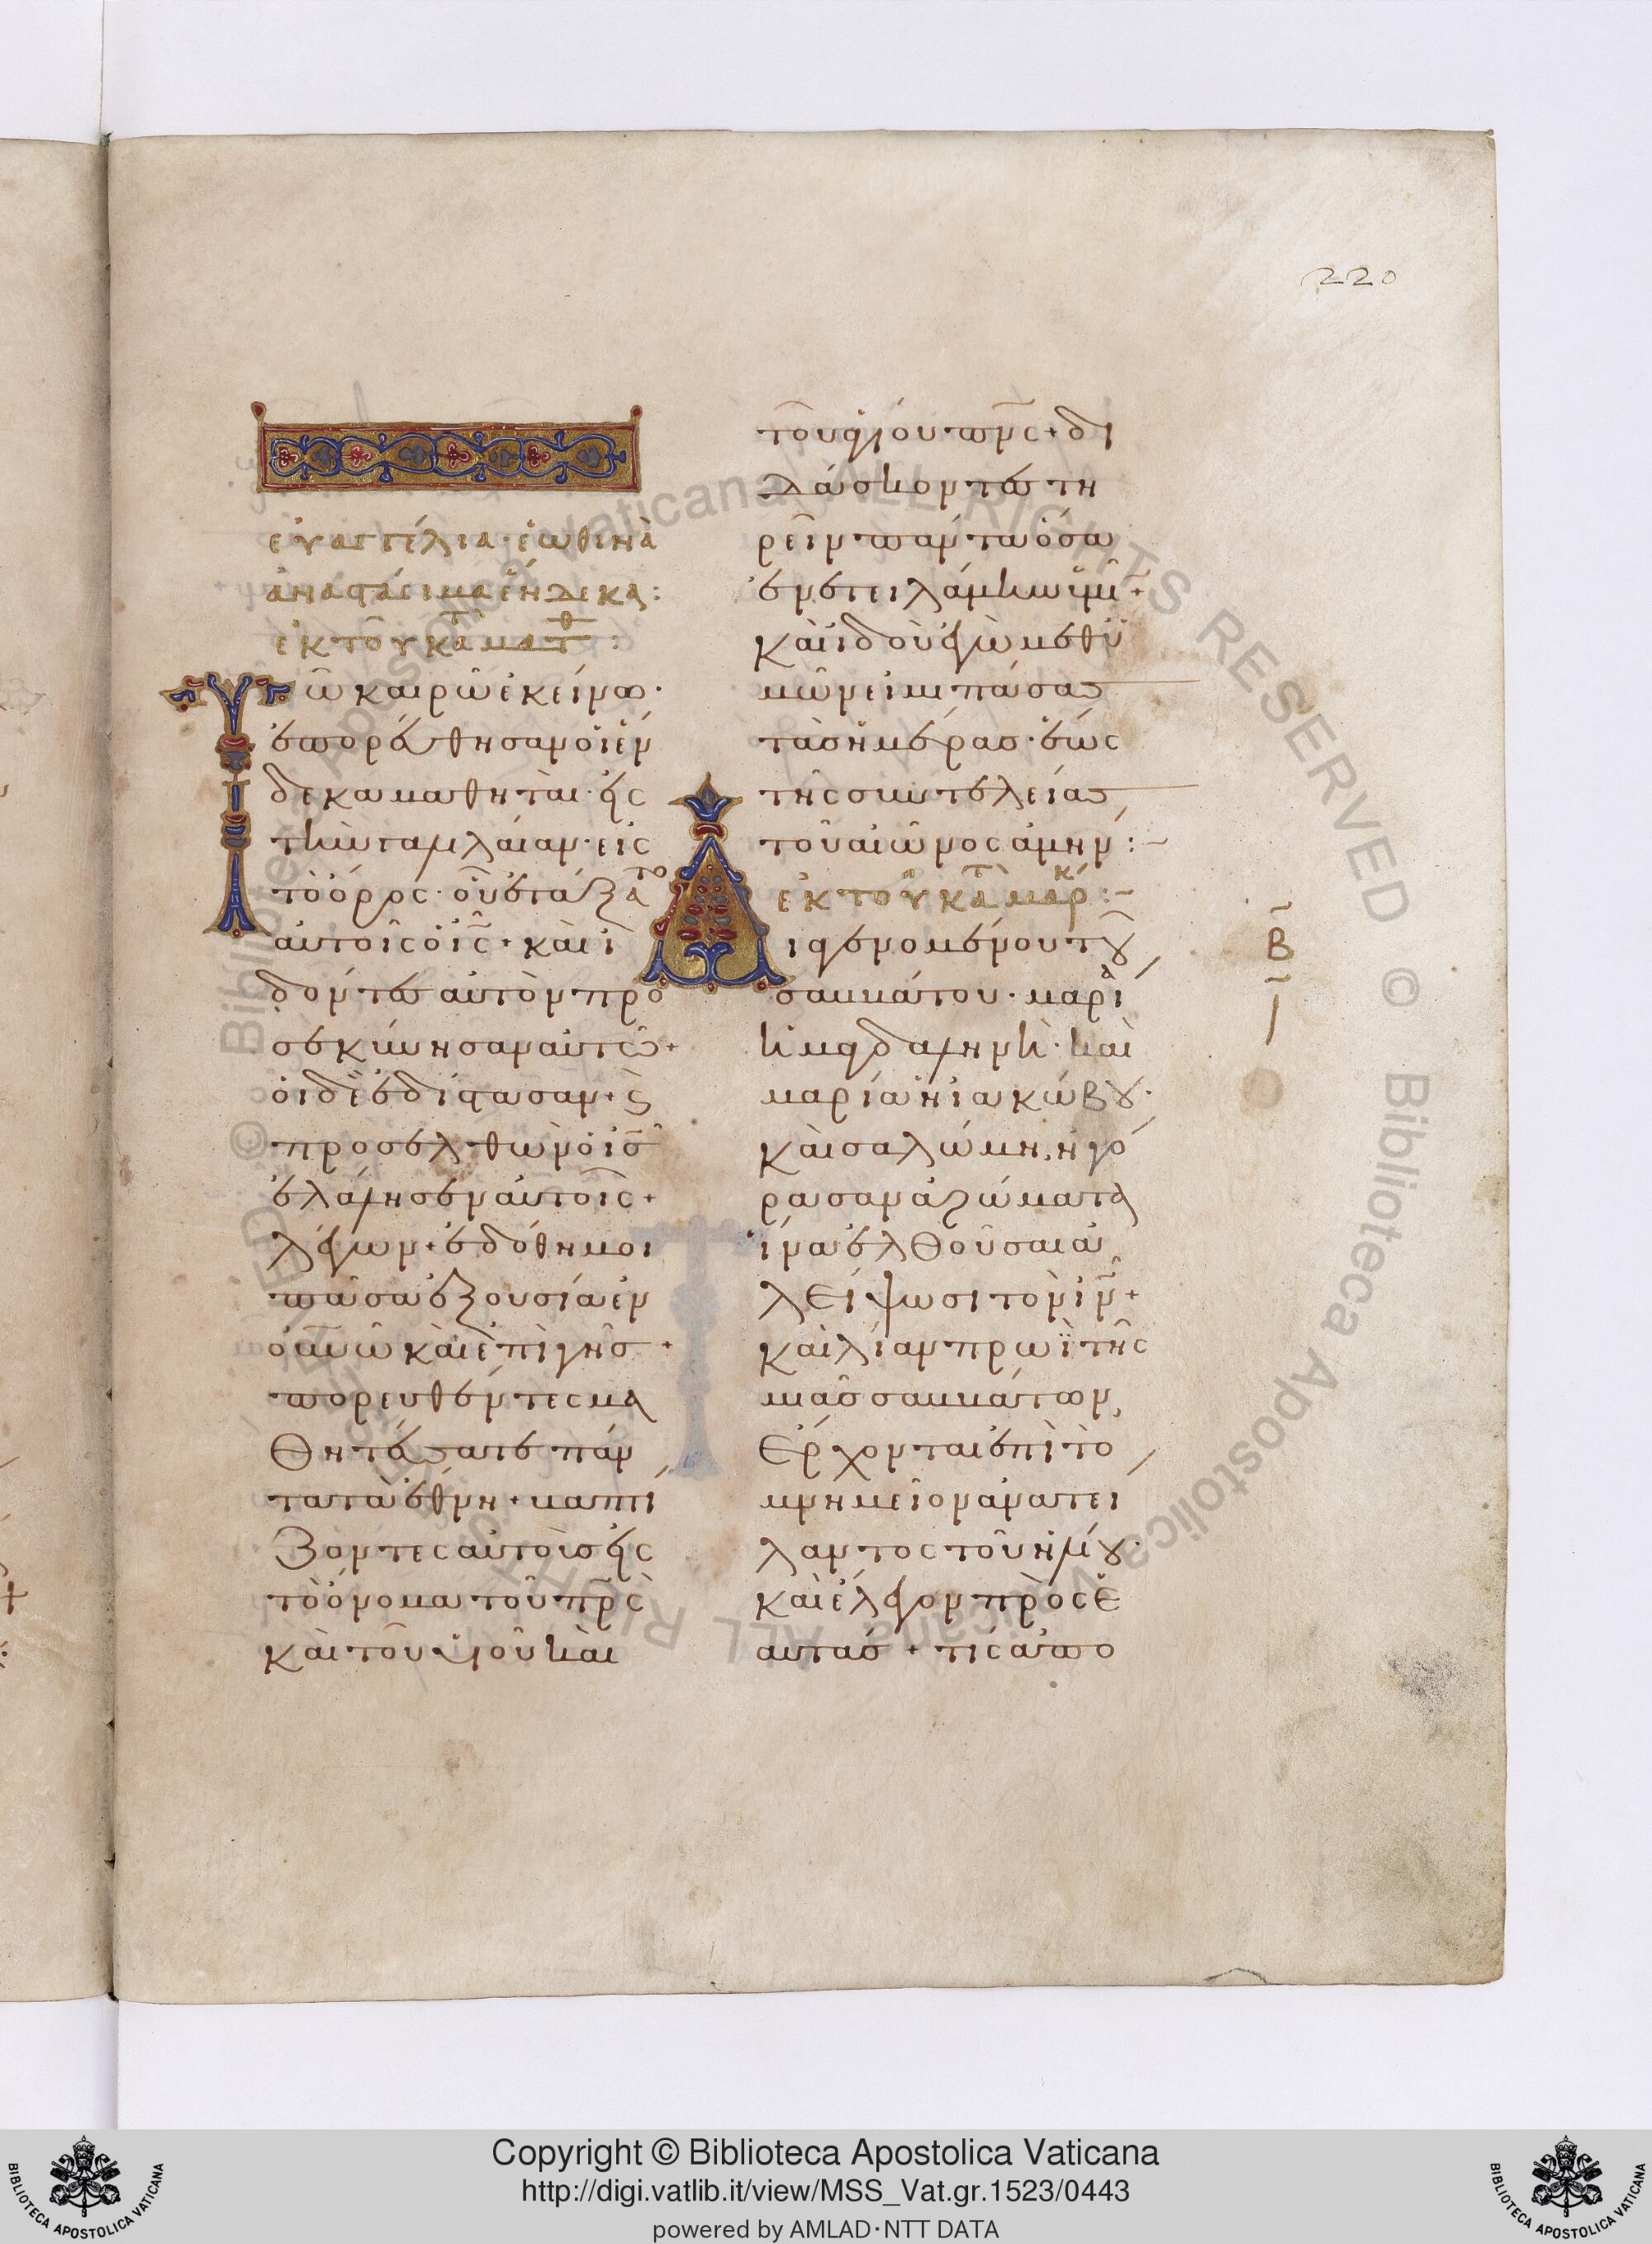 220
εὐαγγέλια · ἑωθινὰ
ἀναστάσιμα ἕνδεκα :
ἐκ τοῦ κατὰ ματθ :
Τῶ καιρῶ ἐκείνω ·
ἐπορεύθησαν οἱ ἕν
δεκα μαθηταὶ · εἰς
τὴν γαλιλαίαν · εἰς
τὸ ὄρος · οὗ ἐτάξατο
αὐτοῖς ὁ ις̅ + καὶ ἰ
δόντες αὐτὸν προ
σεκύνησαν αὐτῶ +
οἱ δὲ ἐδίστασαν + ϛ
προσελθὼν ὁ ις̅
ἐλάλησεν αὐτοῖς +
λέγων + ἐδόθη μοι
πᾶσα ἐξουσία ἐν
ουνω̅ καὶ ἐπὶ γῆς +
πορευθέντες μα
θητεύσατε πάν
τα τὰ ἔθνη + βαπτί
ζοντες αὐτοὺς εἰς
τὸ ὄνομα τοῦ πρ̅ς
καὶ τοῦ υἱοῦ καὶ
τοῦ ἁγίου πν̅ς + δι
δάσκοντες τη
ρεῖν πάντα ὅσα
ἐνετειλάμην ὑμῖν +
καὶ ἰδοὺ ἐγὼ μεθ ὑ
μῶν εἰμι πάσας
τὰς ἡμέρας · ἕως
τῆς συντελείας
τοῦ αἰῶνος ἀμήν : ~
ἐκ τοῦ κατὰ μάρκ : ~
Διαγενομένου τοῦ
σαββάτου · μαρία
ἡ μαγδαληνὴ · καὶ
μαρία ἡ ἰακώβου ·
καὶ σαλώμη, ἠγό
ρασαν ἀρώματα
ἵνα ἐλθοῦσαι ἀ
λείψωσι τὸν ιν̅ +
καὶ λίαν πρωῒ τῆς
μιᾶς σαββάτων,
ἔρχονται ἐπὶ τὸ
μνημεῖον ἀνατεί
λαντος τοῦ ἡλίου ·
καὶ ἔλεγον πρὸς ἑ
αυτάς + τίς ἀπο
Β
Copyright © Biblioteca Apostolica Vaticana
http://digi.vatlib.it/view/MSS_Vat.gr.1523/0443
powered by AMLAD·NTT DATA
BIBLIOTECA APOSTOLICA VATICANA
BIBLIOTECA APOSTOLICA VATICANA
© Biblioteca Apostolica Vaticana ALL RIGHTS RESERVED © Biblioteca Apostolica Vaticana ALL RIGHTS RESERVED